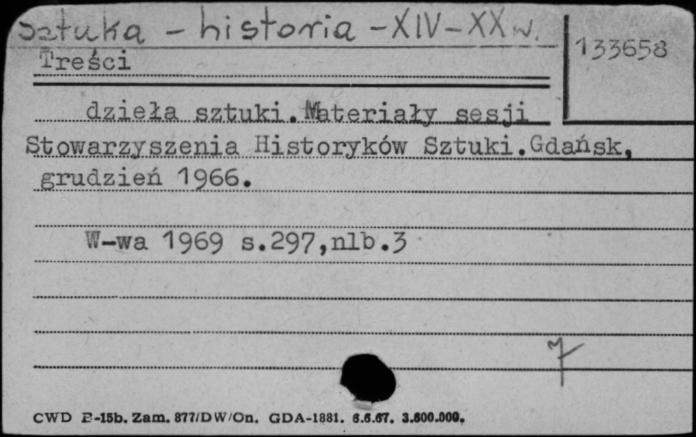 sztuka - historia - XIV - XX w.
133658
Treści
dzieła sztuki. Materiały sesji
Stowarzyszenia Historyków Sztuki. Gdańsk,
grudzień 1966.
W-wa 1969 s.297,nlb.3
7
CWD B-15b. Zam. 877/DW/On. GDA-1881. 6.6.67. 3.600.000.